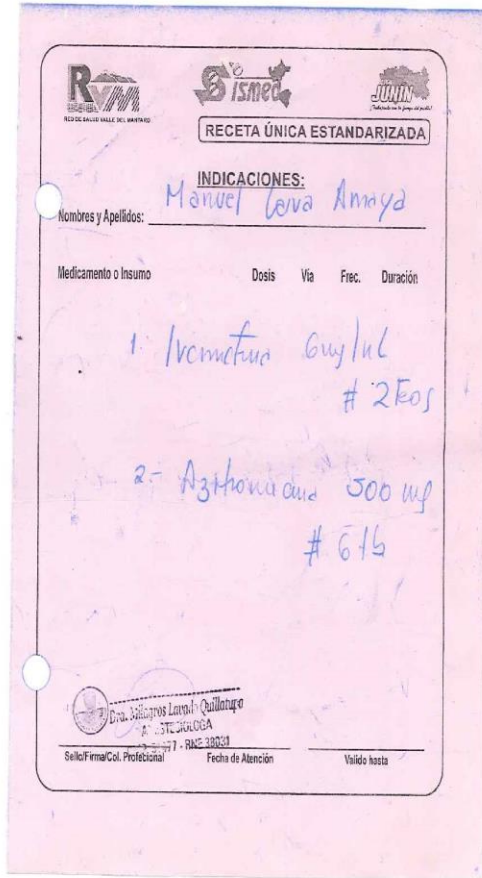 RVM
RED DE SALUD VALLE DEL MANTARO
Sismed
JUNIN
RECETA ÚNICA ESTANDARIZADA
INDICACIONES:
Nombres y Apellidos: Manuel Leiva Amaya
Medicamento o Insumo Dosis Vía Frec. Duración
1. Ivermectina 6mg/ml
# 2 Fcos
2.- Azitromicina 500 mg
# 6 tb
Dra. Milagros Lavado Quillatupa
RNE 38031
Sello/Firma/Col. Profecional Fecha de Atención Valido hasta